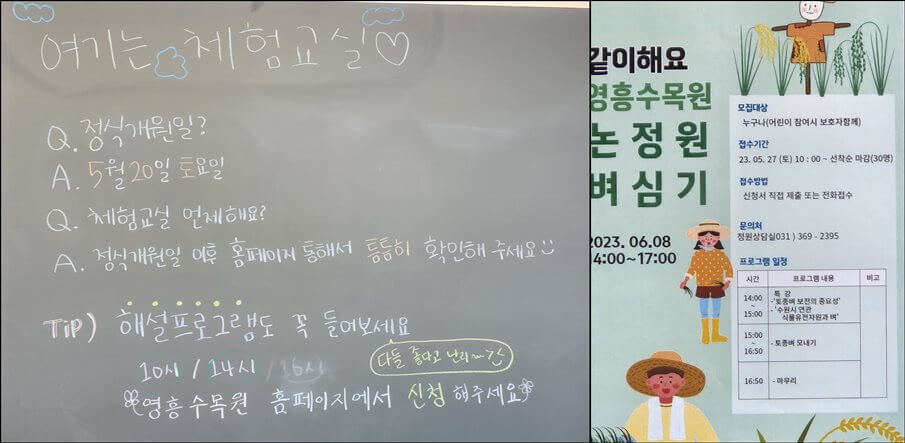 여기는 체험교실♡
Q. 정식개원일?
A. 5월 20일 토요일
Q. 체험교실 언제해요?
A. 정식개원일 이후 홈페이지 통해서 틈틈히 확인해 주세요
Tip) 해설프로그램도 꼭 들어보세요
다들 좋다고 난리~간
10시 / 14시 / 16시
영흥수목원 홈페이지에서 신청해주세요
같이해요
영흥수목원
논정원
벼심기
2023. 06.08
14:00~17:00
모집대상
누구나(어린이 참여시 보호자함께)
접수기간
23. 05. 27 (토) 10 : 00 ~ 선착순 마감(30명)
접수방법
신청서 직접 제출 또는 전화접수
문의처
정원상담실031 ) 369 - 2395
프로그램 일정
시간 프로그램 내용 비고
14:00 ~ 15:00 특 강
-'토종벼 보전의 중요성'
-'수원시 연관
식물유전자원과 벼'
15:00 ~ 16:50 - 토종벼 모내기
16:50 - 마무리